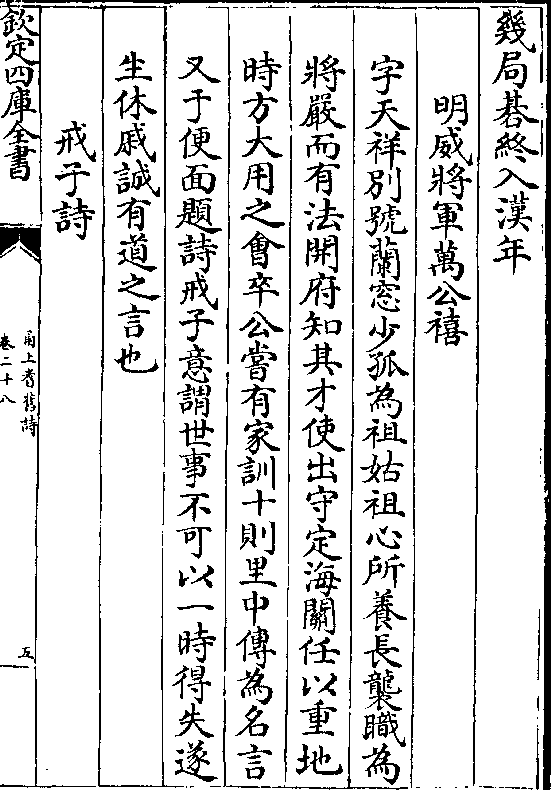 幾局碁終入漢年
明威將軍萬公禧
字天祥別號蘭窓少孤為祖姑祖心所養長襲職為
將嚴而有法開府知其才使出守定海關任以重地
時方大用之會卒公嘗有家訓十則里中傳為名言
又于便面題詩戒子意謂世事不可以一時得失遂
生休戚誠有道之言也
戒子詩
欽定四庫全書
甬上耆舊詩
卷二十八
五